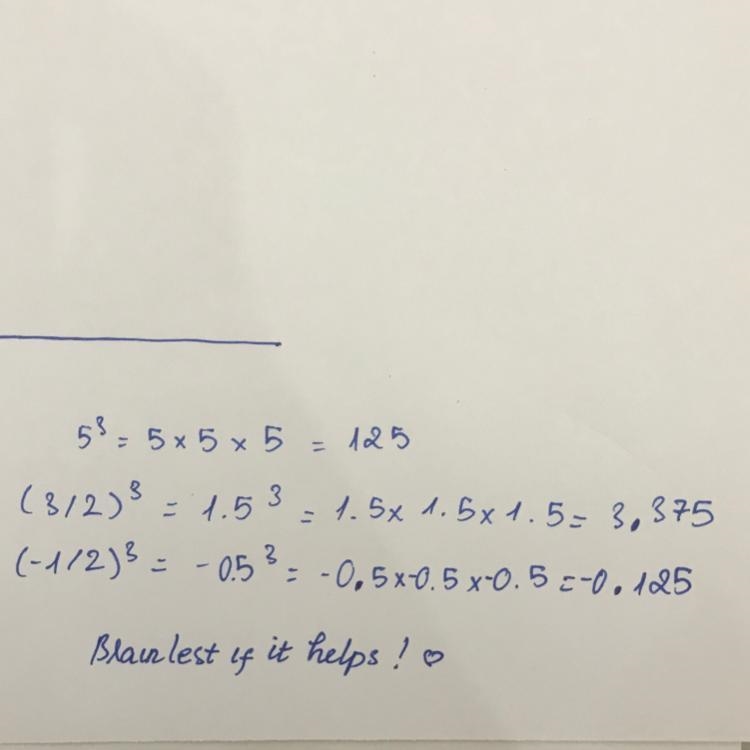 5³ = 5 × 5 × 5 = 125
(3/2)³ = 1.5³ = 1.5× 1.5× 1.5 = 3.375
(-1/2)³ = -0.5³ = -0.5×-0.5×-0.5 = -0.125
Brainlest if it helps! ♡